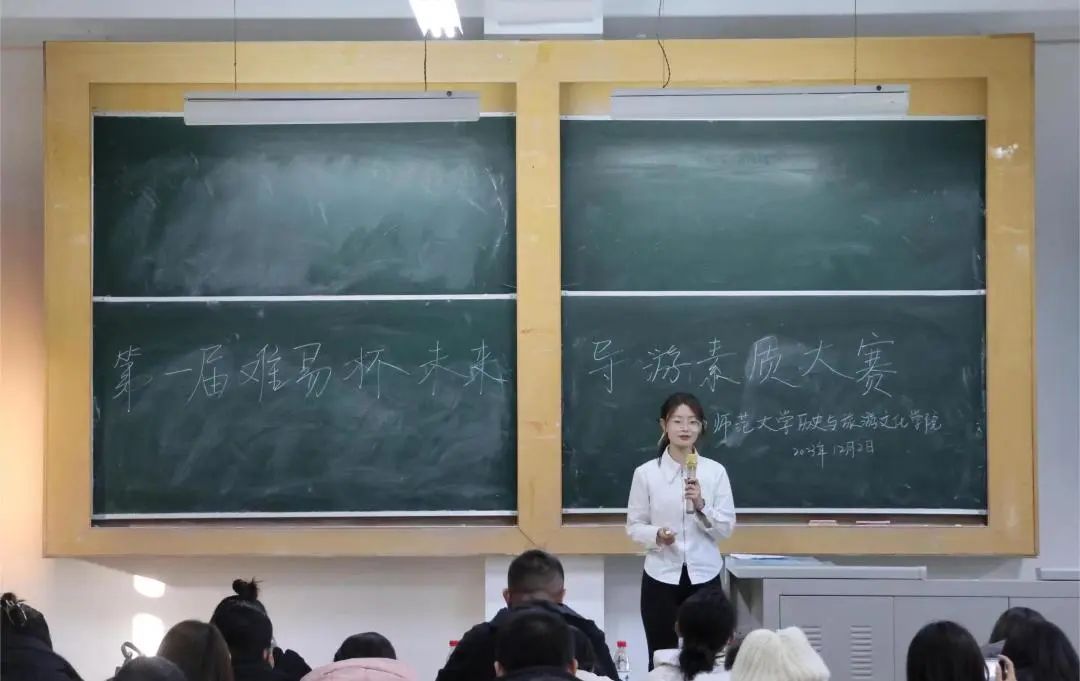 第一届难易杯未来导游素质大赛
师范大学历史与旅游文化学院
2023年12月2日